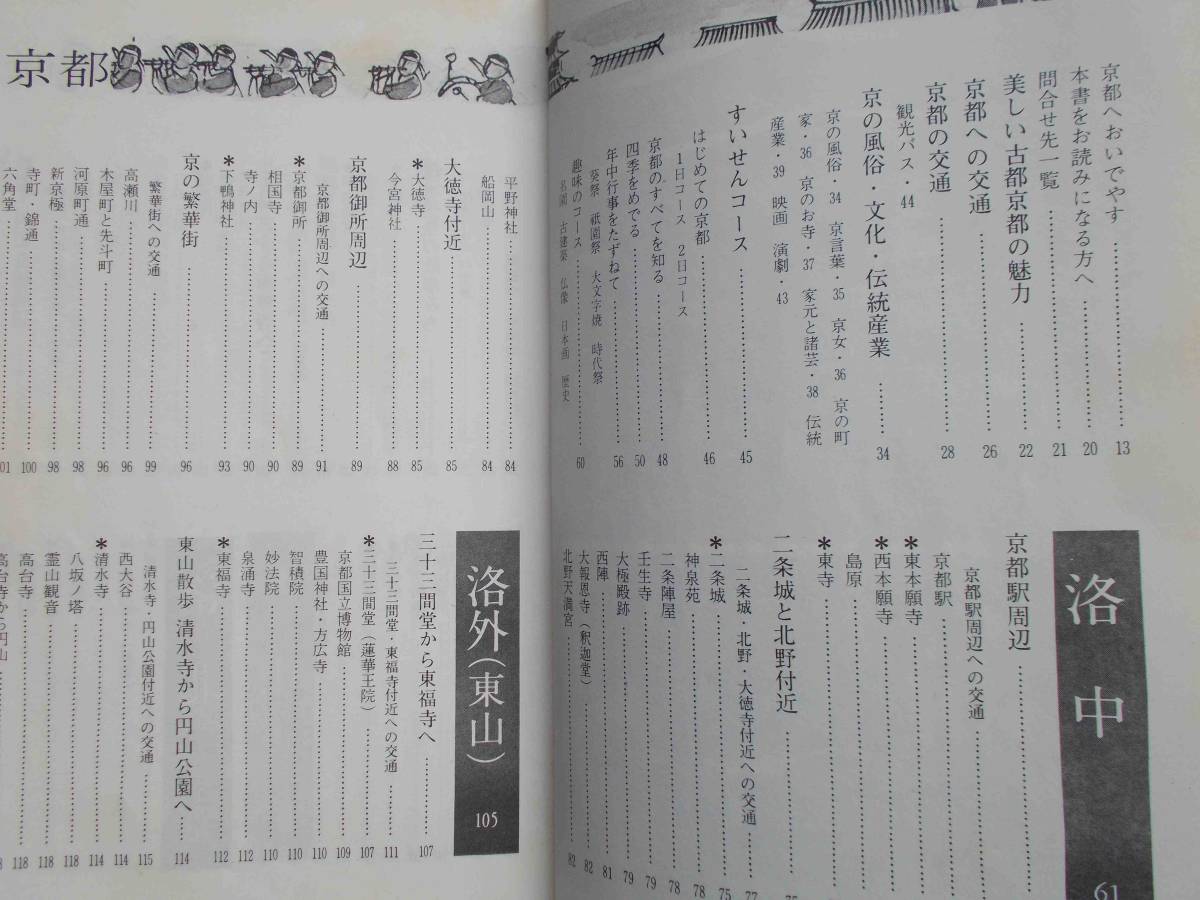 京都へおいでやす……13
本書をお読みになる方へ……20
問合せ先一覧……21
美しい古都京都の魅力……22
京都への交通……26
京都の交通……28
観光バス・44
京の風俗・文化・伝統産業……34
京の風俗・34 京言葉・35 京女・36 京の町
家・36 京のお寺・37 家元と諸芸・38 伝統
産業・39 映画 演劇・43
すいせんコース……45
はじめての京都……46
1日コース 2日コース
京都のすべてを知る……48
四季をめでる……50
年中行事をたずねて……56
葵祭 祇園祭 大文字焼 時代祭
趣味のコース……60
名園 古建築 仏像 日本画 歴史
洛中
61
京都駅周辺
京都駅周辺への交通
京都駅
*東本願寺
*西本願寺
島原
*東寺
二条城と北野付近……75
二条城・北野・大徳寺付近への交通……77
*二条城……75
神泉苑……78
二条陣屋……78
壬生寺……79
大極殿跡……79
西陣……81
大報恩寺(釈迦堂)……82
北野天満宮……82
京都
平野神社……84
船岡山……84
大徳寺付近……85
*大徳寺……85
今宮神社……88
京都御所周辺……89
京都御所周辺への交通……91
*京都御所……89
相国寺……90
寺ノ内……90
*下鴨神社……93
京の繁華街……96
繁華街への交通……99
高瀬川……96
木屋町と先斗町……96
河原町通……98
新京極……98
寺町・錦通……100
六角堂……101
洛外(東山)
105
三十三間堂から東福寺へ……107
三十三間堂・東福寺付近への交通……111
*三十三間堂(蓮華王院)……107
京都国立博物館……109
豊国神社・方広寺……110
智積院……110
妙法院……110
泉涌寺……112
*東福寺……112
東山散歩 清水寺から円山公園へ……114
清水寺・円山公園付近への交通……115
西大谷……114
*清水寺……114
八坂ノ塔……118
霊山観音……118
高台寺……118
高台寺から円山